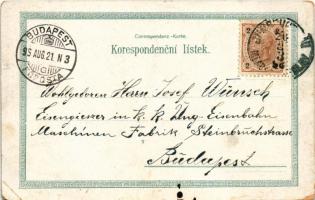 Correspondenz-Karte.
Korespondenční lístek.
BUDAPEST
95 AUG. 21. N 3
Wohlgeboren Herrn Josef Wunsch
Eisengiesser in k. k. Ung. Eisenbahn
Maschinen Fabrik Steinbruchstrasse
Budapest